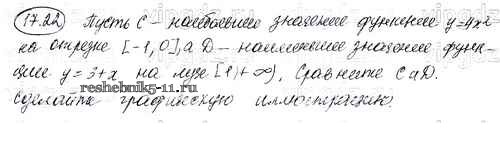 17.22 Пусть C – наибольшее значение функции y=4x²
на отрезке [-1,0], а D – наименьшее значение функ-
ции y=3+x на луче [1;+∞). Сравните C и D.
reshebnik5-11.ru
Сделайте графическую иллюстрацию.